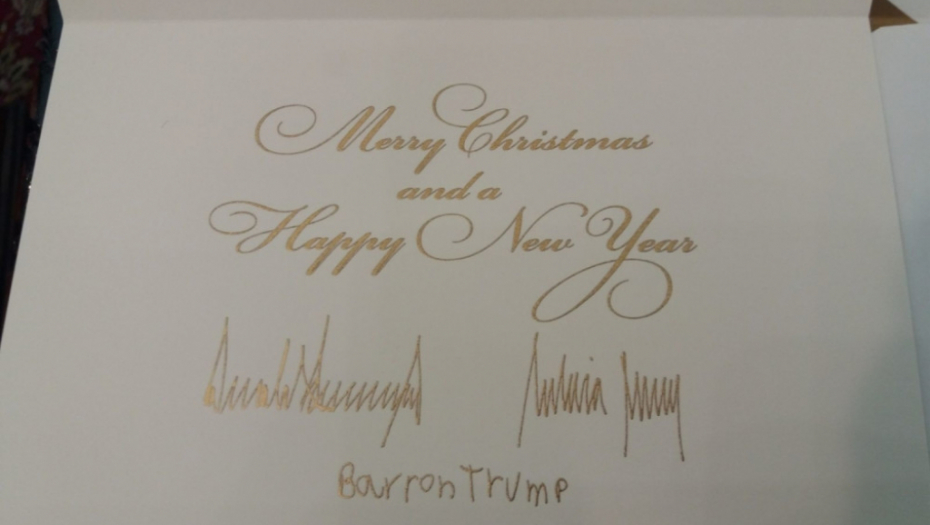 Merry Christmas
and a
Happy New Year
Donald Trump Melania Trump
Barron Trump